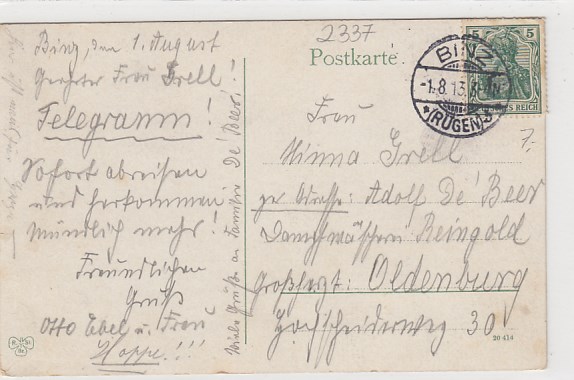 2337
Postkarte
Binz, den 1. August
Geehrte Frau Grell!
Telegramm!
Sofort abreisen
und herkommen
mündlich mehr!
Freundlichen
Gruß
Otto Ebel u. Frau
Hoppe!!!
Viele Grüße an Familie De Beer!
BINZ
-1.8.13.
*(RÜGEN)*
5 5
REICH
7.-
Frau
Minna Grell
per Adresse: Adolf De Beer
Dampfwäscherei Reingold
Oldenburg
Hochheiderweg 30
20414